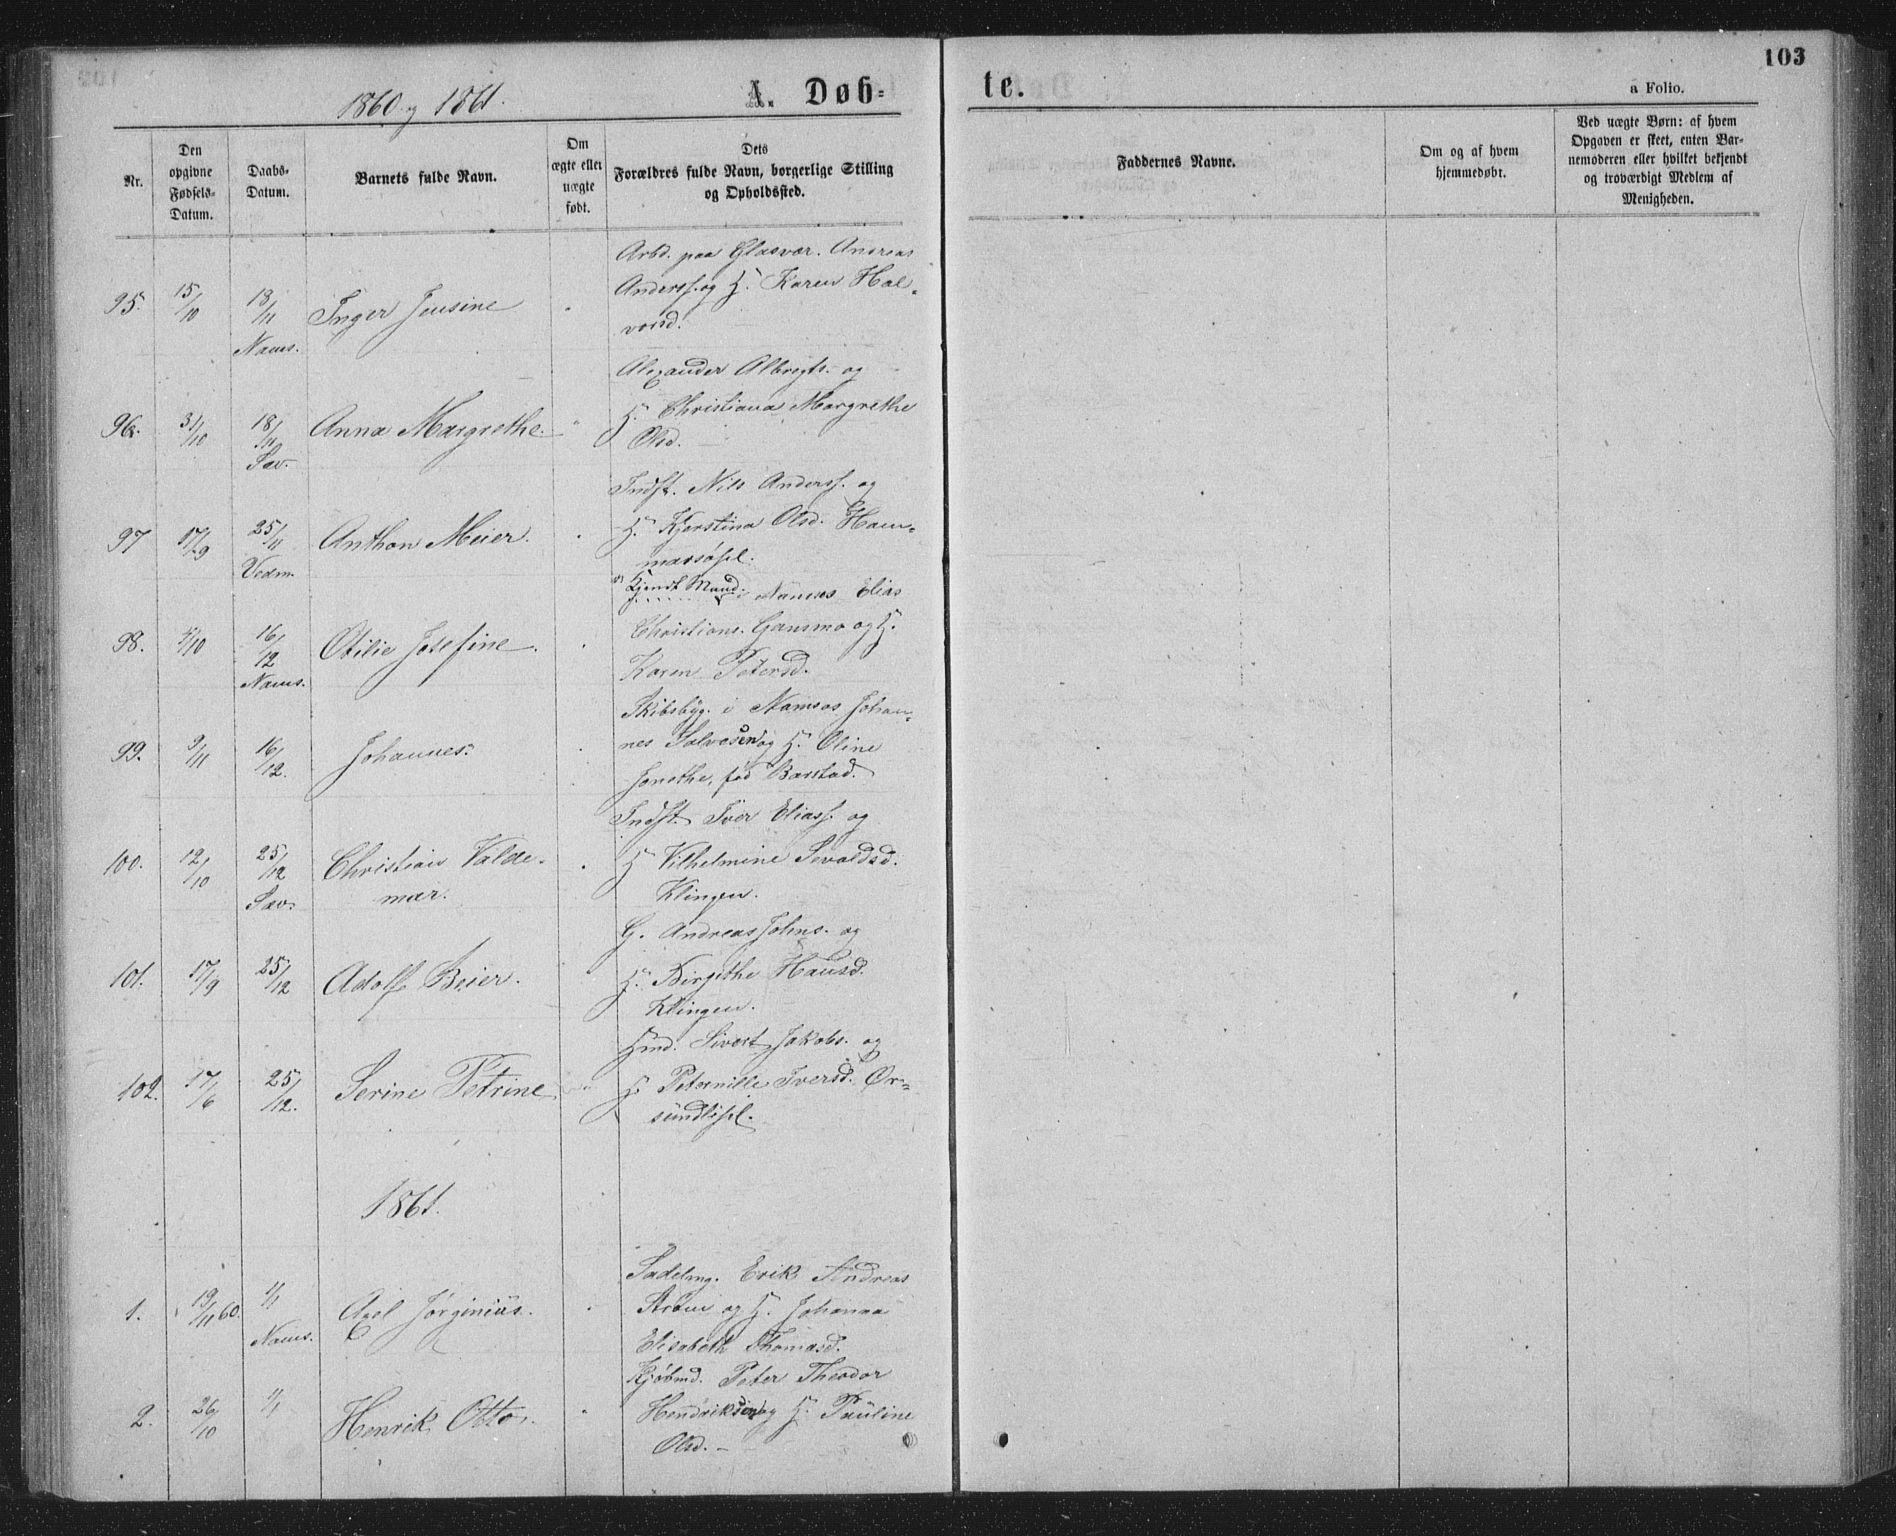 103
1860 og 1861.
A. Døb-
te.
a Folio.
Nr.
Den
opgivne
Fødsels-
Datum.
Daabs-
Datum.
Barnets fulde Navn.
Om
ægte eller
uægte
født.
Dets
Forældres fulde Navn, borgerlige Stilling
og Opholdssted.
Faddernes Navne.
Om og af hvem
hjemmedøbt.
Ved uægte Børn: af hvem
Opgaven er skeet, enten Bar-
nemoderen eller hvilket bekjendt
og troværdigt Medlem af
Menigheden.
Arbd. paa Glasvær. Andreas
95. 15/10 18/11 Inger Jensine Anderss. og H. Karen Hal-
Nams. vorsd.
Alexander Albregts. og
96. 31/10 18/11 Anna Margrethe. H. Christiana Margrethe
Sav. Olsd.
Indst. Nils Anderss. og
97 17/9 25/11 Anthon Meier. H. Kjerstina Olsd. Ham-
Vedm. marsøpl.
Kjendt Mand i Namsos Elias
98. 5/10 16/12 Otilie Josefine. Christians. Gansmo og H.
Nams. Karen Petersd.
Skibsbyg. i Namsos Johan-
99. 9/11 16/12. Johannes. nes Salvesen og H. Oline
Jonethe, fød Barstad.
Indst. Iver Eliass. og
100. 12/10 25/12 Christian Valde- H. Vilhelmine Sivaldsd.
Sav. mar. Klingen.
G. Andreas Johns. og
101. 17/9 25/12 Adolf Beier. H. Birgithe Hansd.
Klingen.
Hmd. Sivert Jakobs. og
102. 17/6 25/12. Serine Petrine H. Peternille Iversd. Ør-
sundtspl.
1861.
Sadelmg. Erik Andreas
1. 19/11 60. 1/1 Axel Jørginius. Strøm og H. Johanna
Nams. Elisabeth Thomasd.
Kjøbmd. Peter Theodor
2. 26/10 1/1 Henrik Otto. Hendriksen og H. Pauline
Olsd.